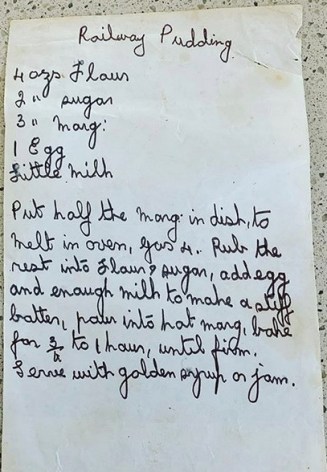 Railway Pudding
4 ozs Flour
2 " sugar
3 " marg:
1 Egg
Little milk
Put half the marg: in dish, to
melt in oven, gas 4. Rub the
rest into flour & sugar, add egg
and enough milk to make a stiff
batter, pour into hot marg, bake
for 3/4 to 1 hour, until firm.
Serve with golden syrup or jam.